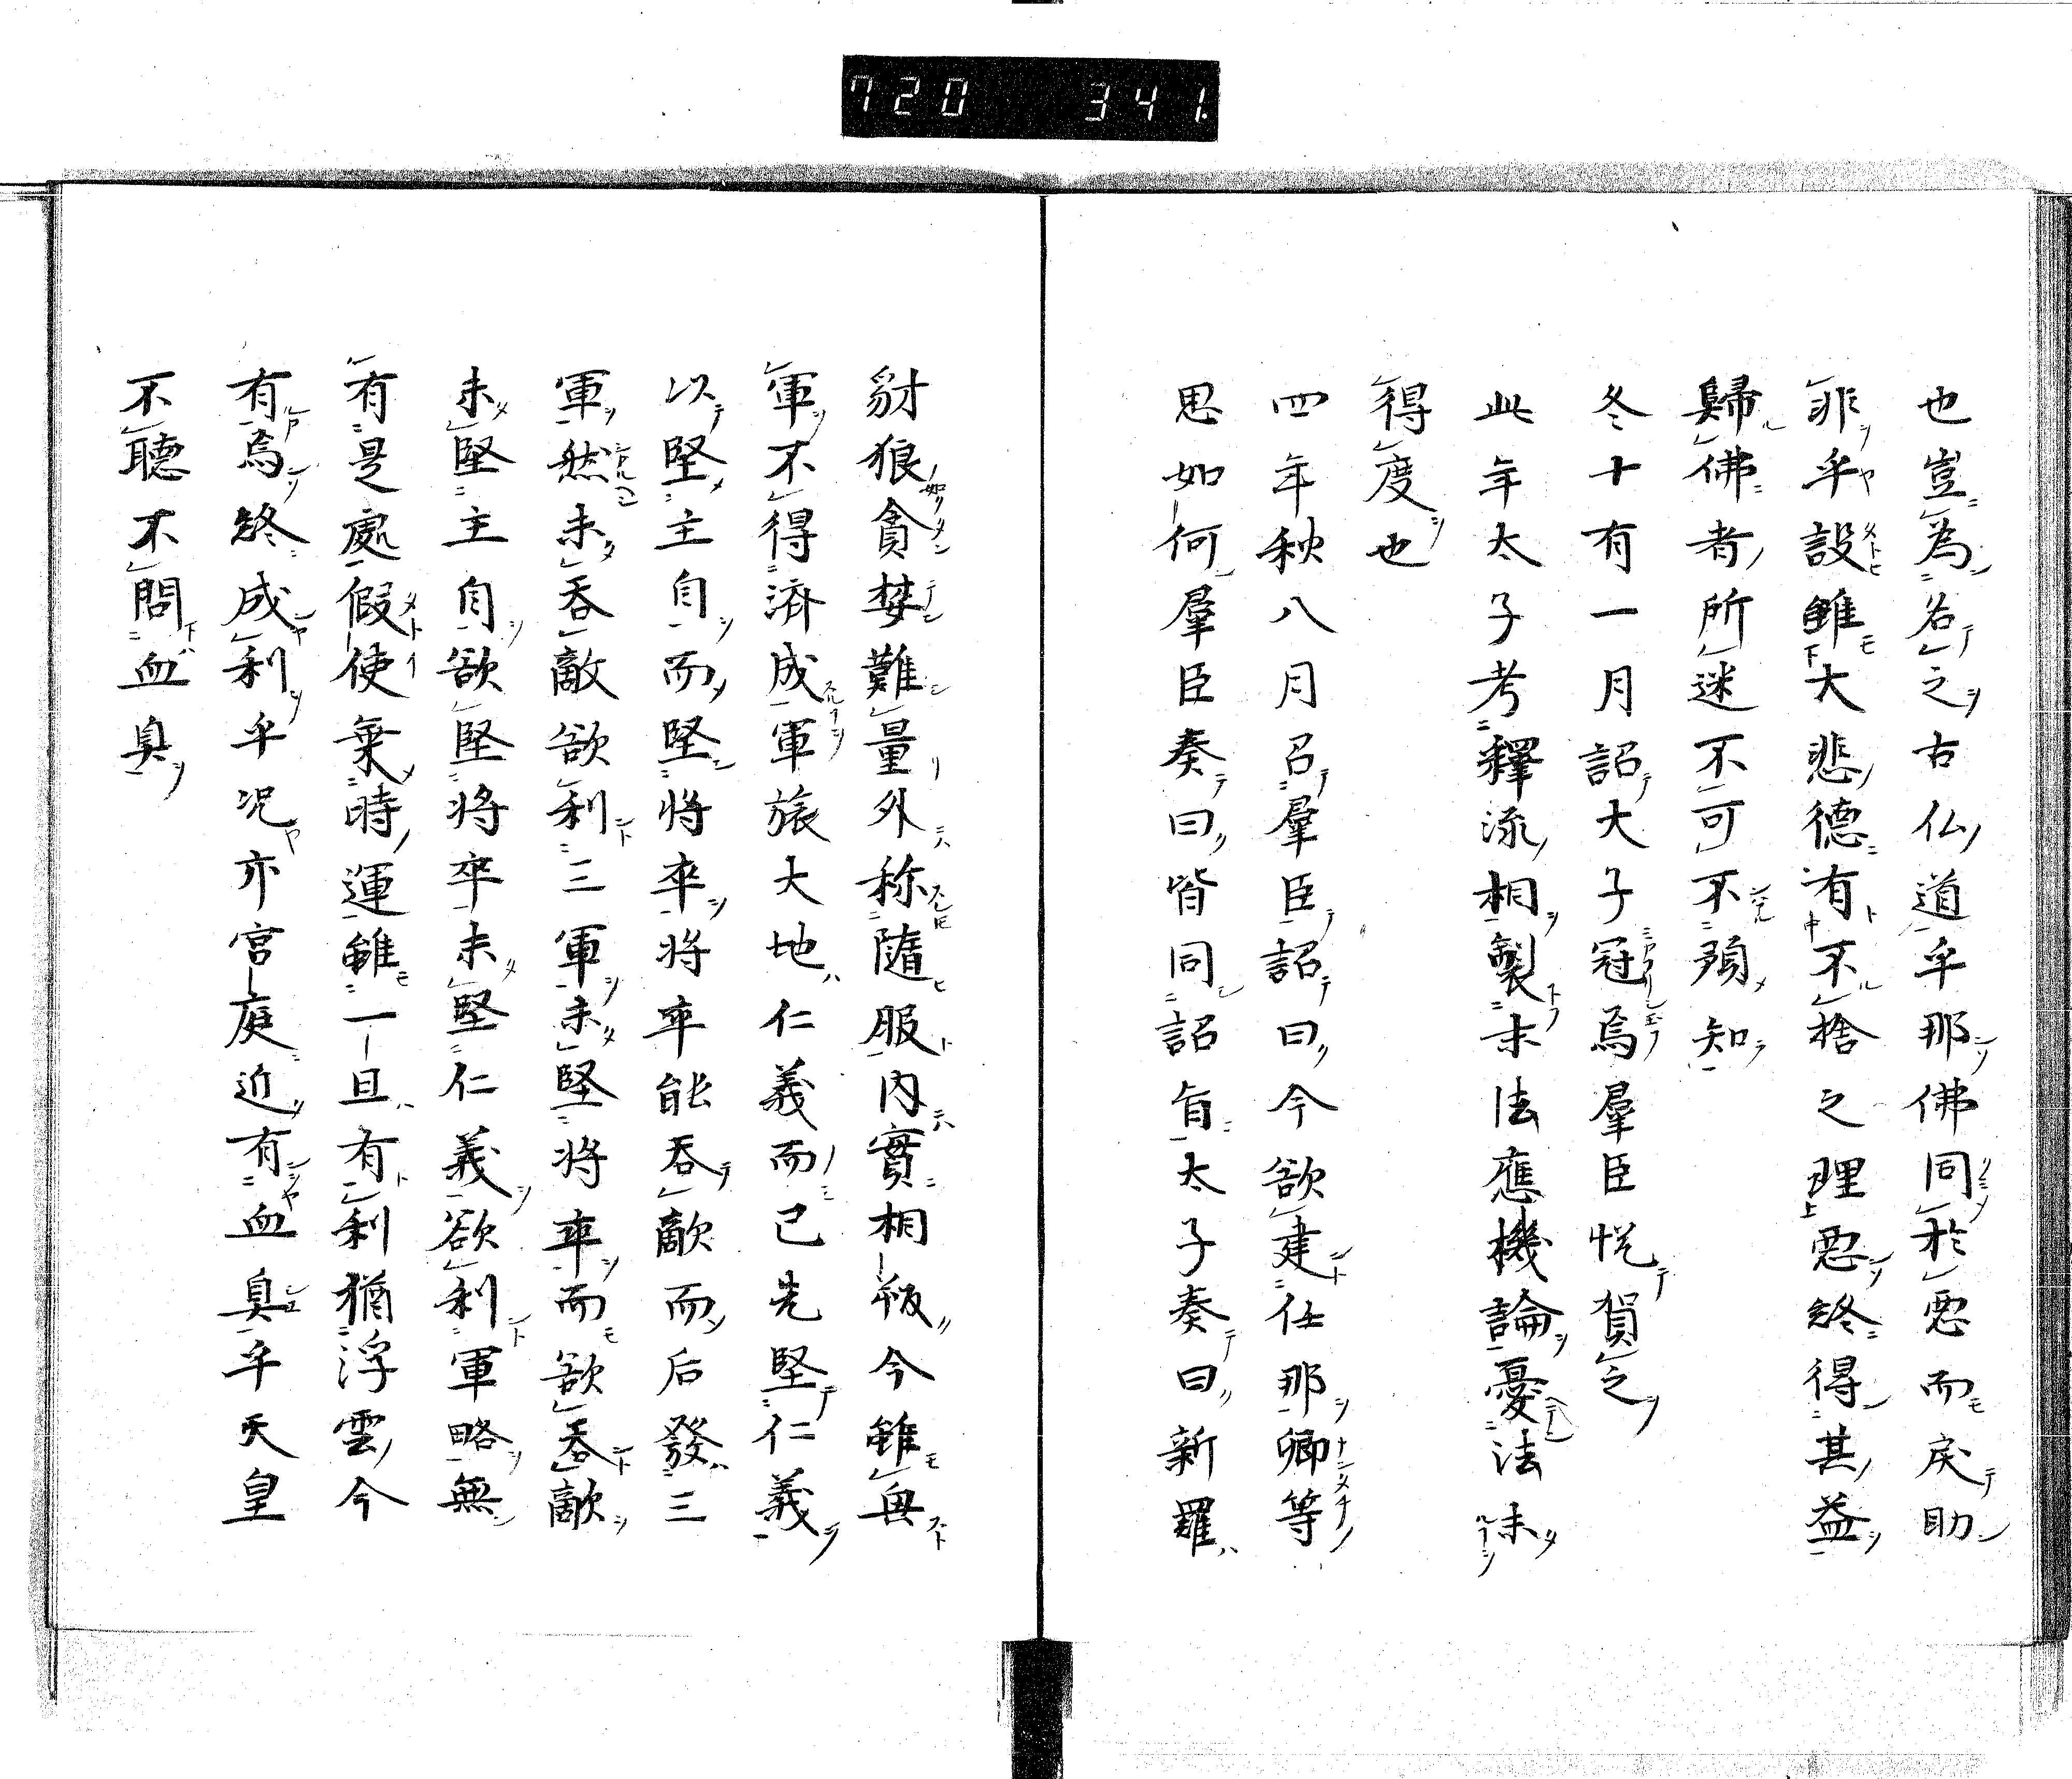 720 341.
也豈為名之古仏道乎那佛同於悪而戻助
非乎設雖大悲德有不捨之理悪終得其益
歸佛者所迷不可不預知
冬十有一月詔大子冠焉羣臣悦賀之
此年太子考釋流相製末法應機論憂法未
得度也
四年秋八月召羣臣詔曰今欲建任那卿等
思如何羣臣奏曰皆同詔旨太子奏曰新羅
豺狼貪婪難量外称隨服内實相叛今雖無
軍不得済成軍旅大地仁義而已先堅仁義
以堅主自而堅将卒将卒能吞敵而后發三
軍然未吞敵欲利三軍未堅将卒而欲吞敵
未堅主自欲堅将卒未堅仁義欲利軍略無
有是處假使棄時運雖一旦有利猶浮雲今
有焉終成利乎况亦宮庭近有血臭乎天皇
不聽不問血臭